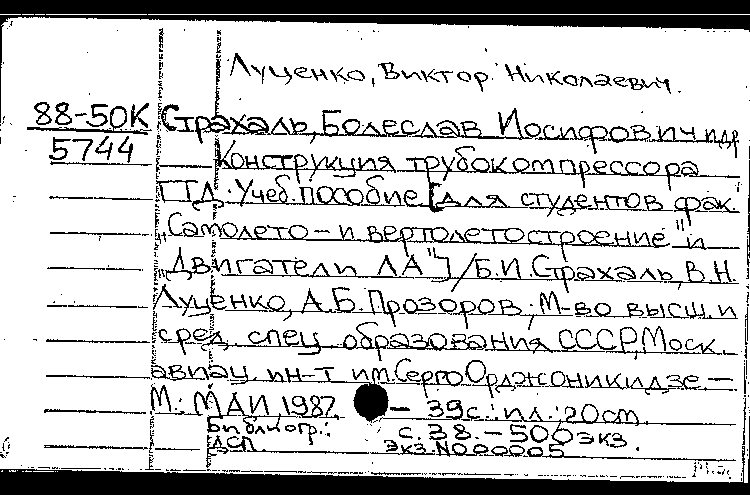 Луценко, Виктор Николаевич.
88-50К Страхаль, Болеслав Иосифович и др
5744 Конструкция трубокомпрессора
ГТД: Учеб. пособие [для студентов фак.
"Самолето- и вертолетостроение" и
"Двигатели ЛА"] / Б.И. Страхаль, В.Н.
Луценко, А.Б. Прозоров; М-во высш. и
сред. спец. образования СССР, Моск.
авиац. ин-т им. Серго Орджоникидзе. —
М.: МАИ, 1987 — 39с.: ил.; 20см.
Библиогр.: с. 38. — 500экз.
ДСП. экз. №00005